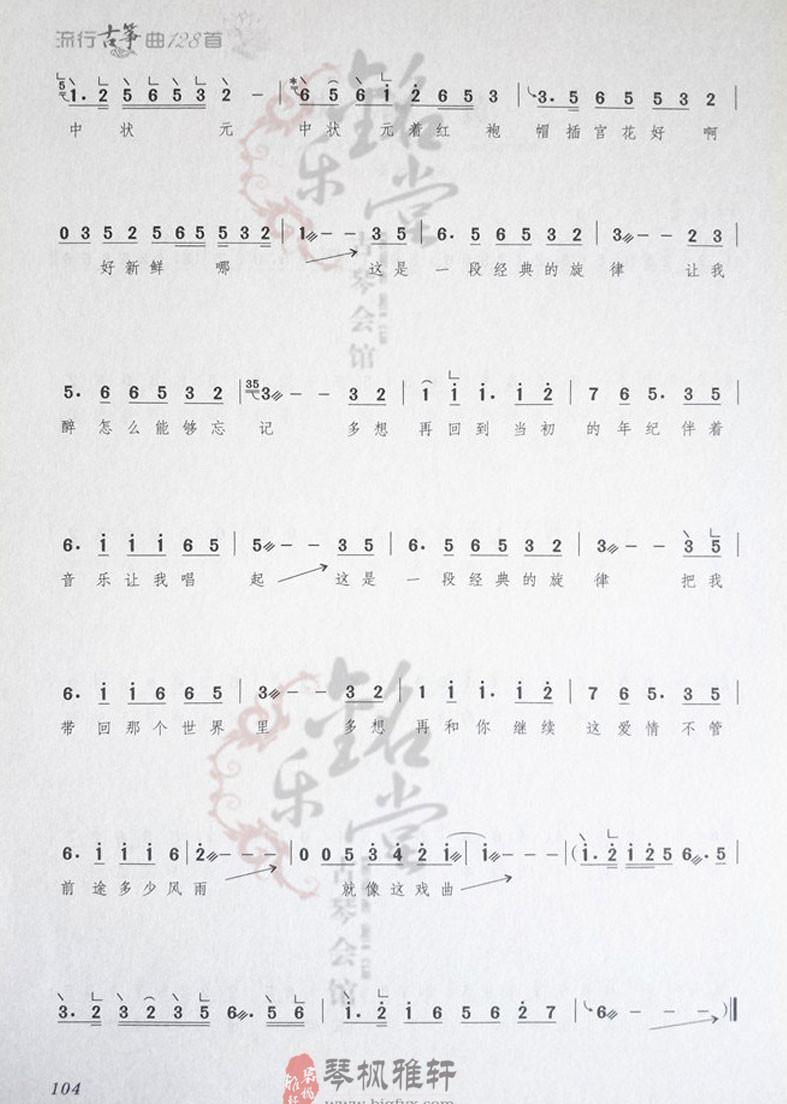 流行古筝曲128首
5 1. 2 5 6 5 3 2 － | 6 5 6 1 2 6 5 3 | 3. 5 6 5 5 3 2 |
中状 元 中状 元着红 袍 帽插宫花好 啊
0 3 5 2 5 6 5 5 3 2 | 1 － － 3 5 | 6. 5 6 5 3 2 | 3 － － 2 3 |
好新鲜 哪 这是 一段经典的旋 律 让我
5. 6 6 5 3 2 | 35 3 － － 3 2 | 1 1 1. 1 2 | 7 6 5. 3 5 |
醉怎么能够忘 记 多想 再回到当初 的年纪伴着
6. 1 1 1 6 5 | 5 － － 3 5 | 6. 5 6 5 3 2 | 3 － － 3 5 |
音乐让我唱 起 这是 一段经典的旋 律 把我
6. 1 1 6 6 5 | 3 － － 3 2 | 1 1 1. 1 2 | 7 6 5. 3 5 |
带回那个世界 里 多想 再和你继续 这爱情不管
6. 1 1 1 6 | 2 － － － | 0 0 5 3 4 2 1 | 1 － － － | (1. 2 1 2 5 6 . 5 |
前途多少风雨 就像这戏曲
3. 2 3 2 3 5 6 . 5 6 | 1. 2 1 6 5 6 2 7 | 6 － － －)
104
铭乐堂
古琴会馆
铭乐堂
古琴会馆
琴枫雅轩